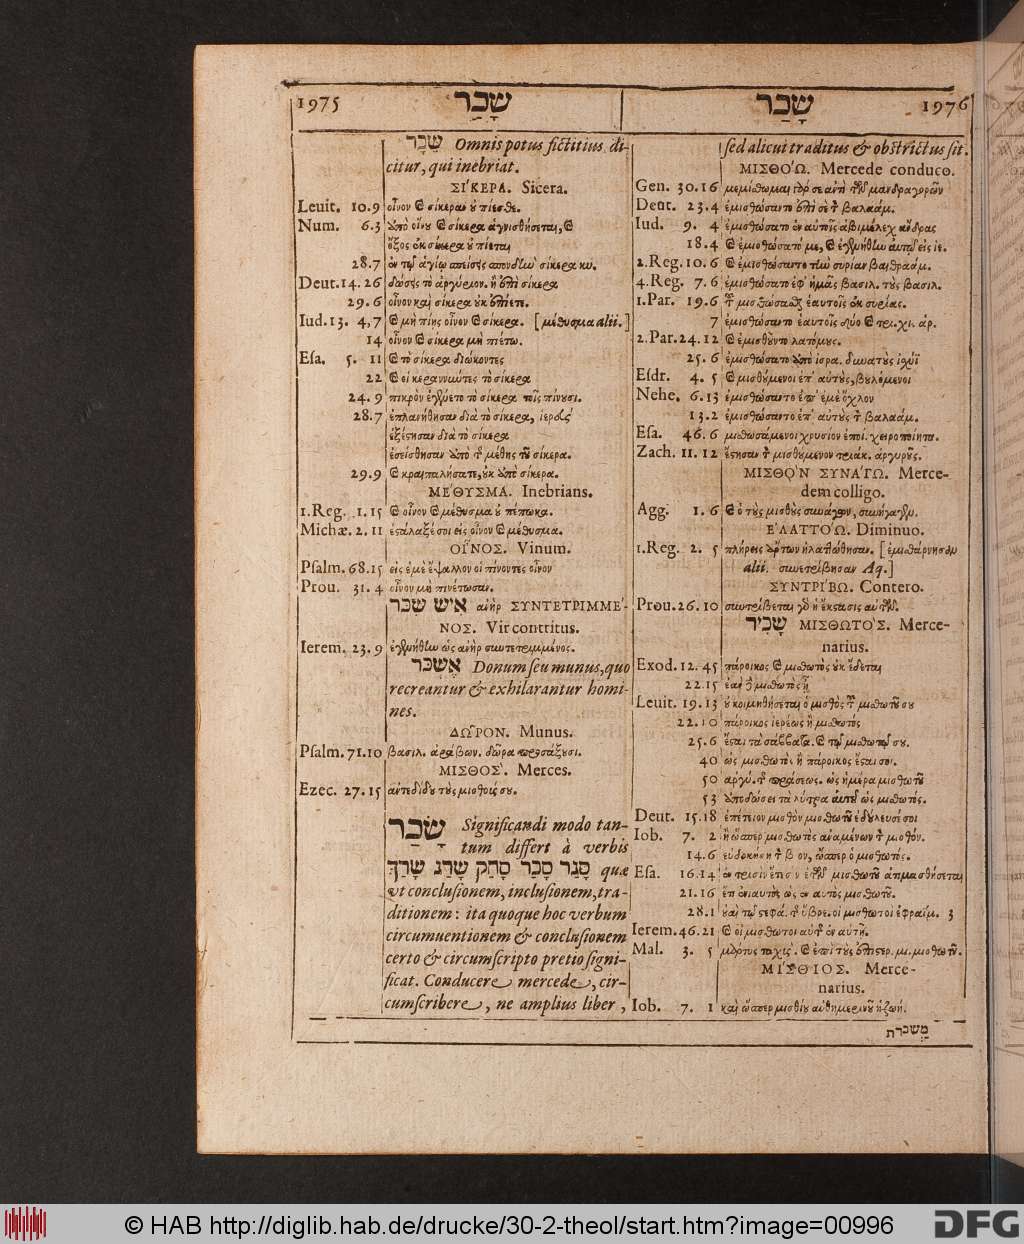 1975 שָׁכַר
שֵׁכָר Omnis potus fictitius dicitur, qui inebriat.
ΣΙ´ΚΕΡΑ. Sicera.
Leuit. 10.9 οἶνον καὶ σίκερα οὐ πίεσθε.
Num. 6.3 ἀπὸ οἴνου καὶ σίκερα ἁγνισθήσεται, καὶ
ὄξος ἐκ σίκερα οὐ πίεται
28.7 ἐν τῷ ἁγίῳ σπείσεις σπονδὴν σίκερα κυ.
Deut. 14.26
29.6 οἶνον καὶ σίκερα οὐκ ἐπίετε.
Iud. 13. 4,7 καὶ μὴ πίῃς οἶνον καὶ σίκερα. [μέθυσμα alii.]
14 οἶνον καὶ σίκερα μὴ πιέτω.
Esa. 5. 11 καὶ τὸ σίκερα διώκοντες
22 καὶ οἱ κεραννύντες τὸ σίκερα
24.9 πικρὸν ἐγένετο τὸ σίκερα τοῖς πίνουσι.
28.7 ἐπλανήθησαν διὰ τὸ σίκερα, ἱερεὺς
ἐξέστησαν διὰ τὸ σίκερα
ἐσείσθησαν ἀπὸ τῆς μέθης τοῦ σίκερα.
29.9 καὶ κραιπαλήσατε, οὐκ ἀπὸ σίκερα.
ΜΕ´ΘΥΣΜΑ. Inebrians.
1.Reg. 1.15 καὶ οἶνον καὶ μέθυσμα οὐ πέπωκα.
Michæ. 2.11 ἐστάλαξέ σοι εἰς οἶνον καὶ μέθυσμα.
ΟΙ῏ΝΟΣ. Vinum.
Psalm. 68.15 εἰς ἐμὲ ἔψαλλον οἱ πίνοντες οἶνον
Prou. 31.4 οἶνον μὴ πινέτωσαν.
איש שכר ἀνὴρ ΣΥΝΤΕΤΡΙΜΜΕ´-
ΝΟΣ. Vir contritus.
Ierem. 23.9 ἐγενήθην ὡς ἀνὴρ συντετριμμένος.
אֶשְׁכָּר Donum seu munus, quo
recreantur & exhilarantur homi-
nes.
ΔΩ῀ΡΟΝ. Munus.
Psalm. 71.10 βασιλ. ἀράβων. δῶρα προσάξουσι.
ΜΙΣΘΟΣ´. Merces.
Ezec. 27.15 ἀντεδίδου τοὺς μισθούς σου.
שָׂכַר Significandi modo tan-
tum differt à verbis
סָגַר סָכַר סָחַק שָׂרַג שָׂרַךְ quæ
vt conclusionem, inclusionem, tra-
ditionem: ita quoque hoc verbum
circumuentionem & conclusionem
certo & circumscripto pretio signi-
ficat. Conducere mercede, cir-
cumscribere, ne amplius liber,
שָׂכַר 1976
sed alicui traditus & obstrictus sit.
ΜΙΣΘΟ´Ω. Mercede conduco.
Gen. 30.16 μεμίσθωμαι γάρ σε ἀντὶ τῶν μανδραγορῶν
Deut. 23.4 ἐμισθώσαντο ἐπὶ σὲ τὸν βαλαάμ.
Iud. 9. 4 ἐμισθώσατο ἐν αὐτοῖς ἀβιμέλεχ ἄνδρας
18.4 καὶ ἐμισθώσατό με, καὶ ἐγενήθην αὐτῷ εἰς ἱε.
2.Reg. 10.6 καὶ ἐμισθώσαντο τὴν συρίαν βαιθραάμ.
4.Reg. 7.6 ἐμισθώσατο ἐφ᾽ ἡμᾶς βασιλ. τοὺς βασιλ.
1.Par. 19.6 τοῦ μισθώσασθαι ἑαυτοῖς ἐκ συρίας.
7 ἐμισθώσαντο ἑαυτοῖς δύο καὶ τρι. χι. ἁρ.
2.Par. 24.12 καὶ ἐμισθοῦντο λατόμους.
25.6 ἐμισθώσατο ἀπὸ ἰσρα. δυνατοὺς ἰσχύϊ
Esdr. 4. 5 καὶ μισθούμενοι ἐπ᾽ αὐτοὺς, βουλόμενοι
Nehe. 6.13 ἐμισθώσαντο ἐπ᾽ ἐμὲ ὄχλον
13.2 ἐμισθώσαντο ἐπ᾽ αὐτοὺς τὸν βαλαάμ.
Esa. 46.6 μισθωσάμενοι χρυσίον ἐποί. χειροποίητα.
Zach. 11.12 ἔστησαν τὸν μισθούμενον τριάκ. ἀργυροῦς.
ΜΙΣΘΟ`Ν ΣΥΝΑ´ΓΩ. Merce-
dem colligo.
Agg. 1.6 καὶ ὁ τοὺς μισθοὺς συνάγων, συνήγαγεν.
Ε᾽ΛΑΤΤΟ´Ω. Diminuo.
1.Reg. 2. 5 πλήρεις ἄρτων ἠλαττώθησαν. [ἐμισθάρνησαν
alii. συνετρίβησαν Aq.]
ΣΥΝΤΡΙ´ΒΩ. Contero.
Prou. 26.10 συντρίβεται γὰρ ἡ ἔκστασις αὐτῶν.
שָׂכִיר ΜΙΣΘΩΤΟ´Σ. Merce-
narius.
Exod. 12.45 πάροικος καὶ μισθωτὸς οὐκ ἔδεται
22.15 ἐὰν δὲ μισθωτὸς ᾖ
Leuit. 19.13 οὐ κοιμηθήσεται ὁ μισθὸς τοῦ μισθωτοῦ σου
22.10 πάροικος ἱερέως ἢ μισθωτὸς
25.6 ἔσται τὰ σάββατα. καὶ τῷ μισθωτῷ σου.
40 ὡς μισθωτὸς ἢ πάροικος ἔσται σοι.
50 ἀργύ. τῆς πράσεως. ὡς ἡμέρα μισθωτοῦ
53
Deut. 15.18 ἐπέτειον μισθὸν μισθωτοῦ ἐδούλευσέ σοι
Iob. 7. 2 ἢ ὥσπερ μισθωτὸς ἀναμένων τὸν μισθόν.
14.6 ὥσπερ ὁ μισθωτός.
Esa. 16.14 ἐν τρισὶν ἔτεσιν ἐτῶν μισθωτοῦ ἀτιμασθήσεται
21.16 ἔτι ἐνιαυτὸς ὡς ἐνιαυτὸς μισθωτοῦ.
28.1 οὐαὶ τῷ στεφά. τῆς ὕβρε. οἱ μισθωτοὶ ἐφραΐμ. 3
Ierem. 46.21 καὶ οἱ μισθωτοὶ αὐτῆς ἐν αὐτῇ.
Mal. 3. 5
ΜΙ´ΣΘΙΟΣ. Merce-
narius.
Iob. 7. 1 καὶ ὥσπερ μισθίου αὐθημερινοῦ ἡ ζωή.
מַשְׂכֹּרֶת
© HAB http://diglib.hab.de/drucke/30-2-theol/start.htm?image=00996
DFG